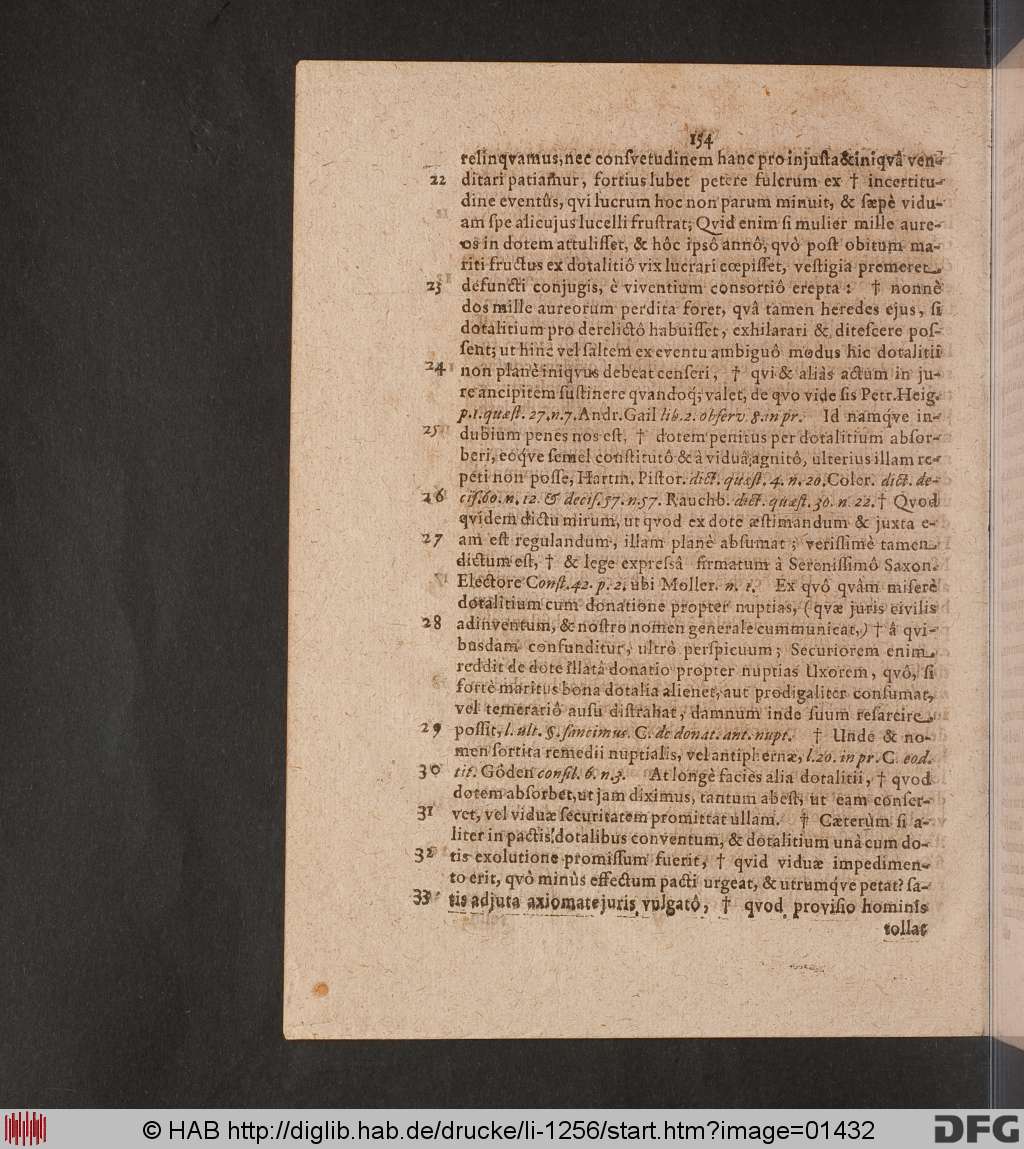 154
relinqvamus, nec consvetudinem hanc pro injusta & iniqvâ ven-
22 ditari patiamur, fortius lubet petere fulcrum ex † incertitu-
dine eventûs, qvi lucrum hoc non parum minuit, & sæpè vidu-
am spe alicujus lucelli frustrat; Qvid enim si mulier mille aure-
os in dotem attulisset, & hôc ipsô annô, qvò post obitum ma-
riti fructus ex dotalitiô vix lucrari cœpisset, vestigia premeret
23 defuncti conjugis, è viventium consortiô erepta: † nonnè
dos mille aureorum perdita foret, qvâ tamen heredes ejus, si
dotalitium pro derelictô habuisset, exhilarari & ditescere pos-
sent; ut hinc vel saltem ex eventu ambiguô modus hic dotalitii
24 non planè iniqvus debeat censeri, † qvi & aliàs actum in ju-
re ancipitem sustinere qvandoq́; valet, de qvo vide sis Petr. Heig.
p. 1. quæst. 27. n. 7. Andr. Gail lib. 2. observ. 8. in pr. Id namqve in-
25 dubium penes nos est, † dotem penitus per dotalitium absor-
beri, eoqve semel constitutô & à viduâ agnitô, ulterius illam re-
peti non posse, Hartm. Pistor. dict. quæst. 4. n. 20. Coler. dict. de-
26 cis. 60. n. 12. & decis. 57. n. 57. Rauchb. dict. quæst. 30. n. 22. † Qvod
qvidem dictu mirum, ut qvod ex dote æstimandum & juxta e-
27 am est regulandum, illam planè absumat; verissimè tamen
dictum est, † & lege expressâ firmatum à Serenissimô Saxon.
Electore Const. 42. p. 2. ubi Moller. n. 1. Ex qvô qvàm miserè
dotalitium cum donatione propter nuptias, (qvæ juris civilis
28 adinventum, & nostro nomen generale cummunicat,) † â qvi-
busdam confunditur, ultrò perspicuum; Securiorem enim
reddit de dote illatâ donatio propter nuptias Uxorem, qvô, si
fortè maritus bona dotalia alienet, aut prodigaliter consumat,
vel temerariô ausu distrahat, damnum inde suum resarcire
29 possit, l. ult. §. sancimus. C. de donat. ant. nupt. † Unde & no-
men sortita remedii nuptialis, vel antiphernæ, l. 20. in pr. C. eod.
30 tit. Gôden consil. 6. n. 3. At longè facies alia dotalitii, † qvod
dotem absorbet, ut jam diximus, tantum abest, ut eam conser-
31 vet, vel viduæ securitatem promittat ullam. † Cæterùm si a-
liter in pactis dotalibus conventum, & dotalitium unà cum do-
32 tis exolutione promissum fuerit, † qvid viduæ impedimen-
to erit, qvò minùs effectum pacti urgeat, & utrumq́ve petat? sa-
33 tis adjuta axiomate juris vulgatô, † qvod provisio hominis
tollat
© HAB http://diglib.hab.de/drucke/li-1256/start.htm?image=01432
DFG